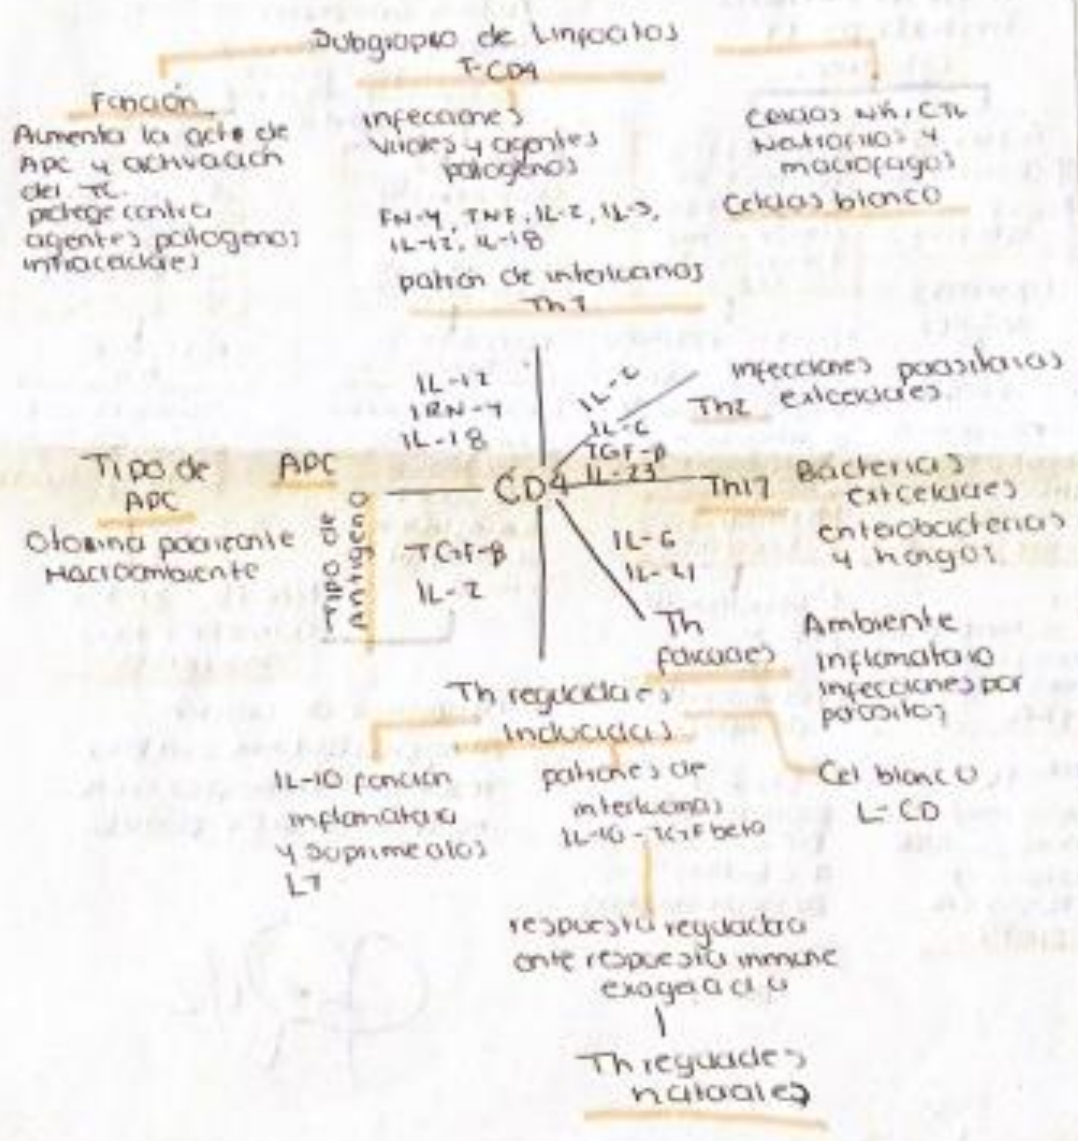 Subgrupo de Linfocitos
T-CD4
Función
Aumenta la acto de
APC y activación
del TC.
protege contra
agentes patogenos
intracelulares
infecciones
virales y agentes
patogenos
FN-γ, TNF, IL-2, IL-3,
IL-12, IL-18
patron de interlucinas
Th1
Celulas NK, CTL
Neutrofilos y
macrofagos
Celulas blanco
IL-12
IRN-γ
IL-18
IL-2
Th2
infecciones parasitarias
extcelulares.
Tipo de
APC
Citosina polarizante
Macroambiente
APC
Tipo de
Antígeno
CD4
IL-6
TGF-β
IL-23
Th17
Bacterias
extcelulares
enterobacterias
y hongos
TGF-β
IL-2
IL-6
IL-21
Th
foliculares
Ambiente
inflamatorio
infecciones por
parasitos
Th reguladores
Inducidas.
IL-10 función
inflamatoria
y suprime a los
LT
patrones de
interlucinas
IL-10 - TGF beta
Cel blanco
L-CD
respuesta reguladora
ante respuesta inmune
exagerada
Th regulades
naturales